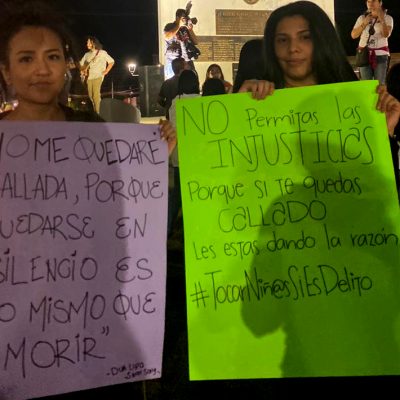 NO ME QUEDARE
CALLADA, PORQUE
QUEDARSE EN
SILENCIO ES
LO MISMO QUE
MORIR"
NO Permitas las
INJUSTICIAS
Porque si te quedas
CALLADO
Les estas dando la razón
#TocarNiñ@sSiEsDelito